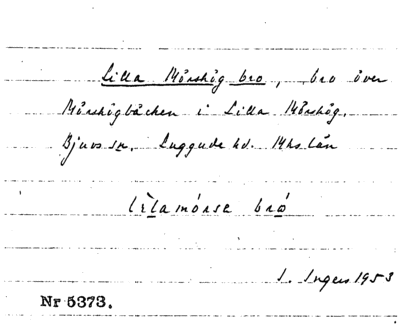 Lilla Mörshög bro, bro över
Mörshögbäcken i Lilla Mörshög,
Bjuvs sn. Luggude hd. Mhs län
lìlamórse bró
I. Ingers 1953
Nr 5373.